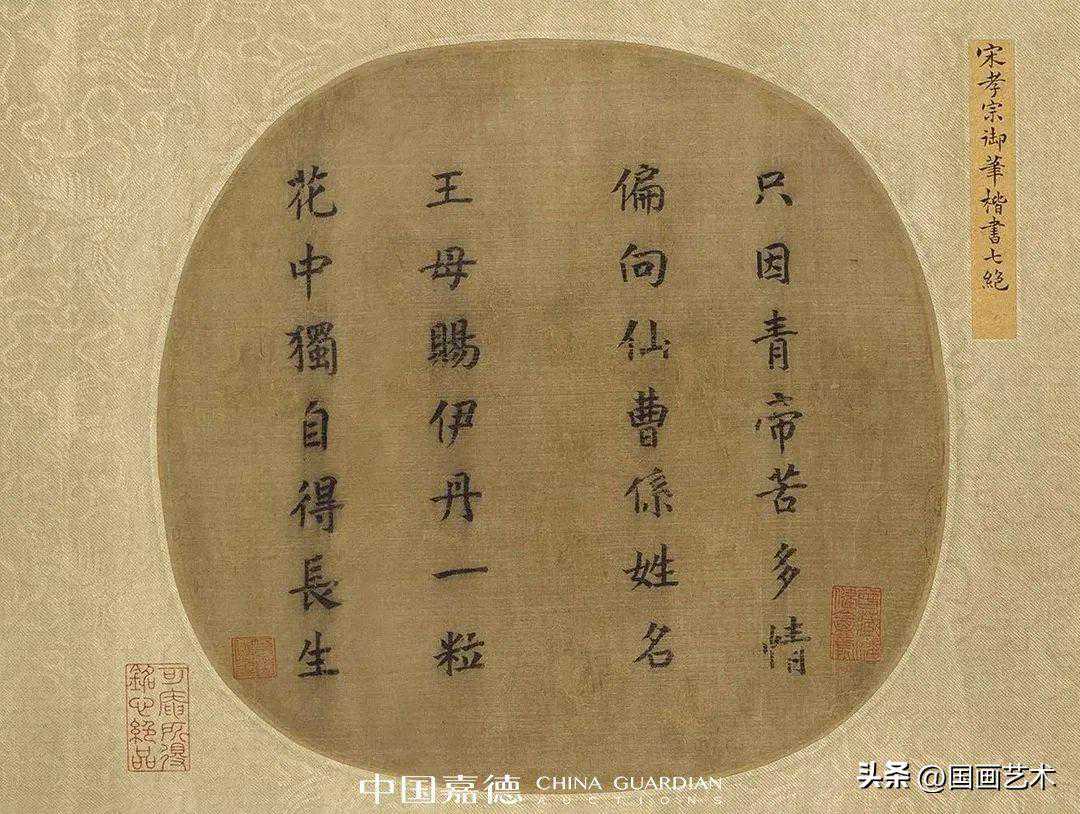 宋孝宗御筆楷書七絶
只因青帝苦多情
偏向仙曹係姓名
王母賜伊丹一粒
花中獨自得長生
可庵所得
銘心絶品
中国嘉德 CHINA GUARDIAN
AUCTIONS
头条 @国画艺术